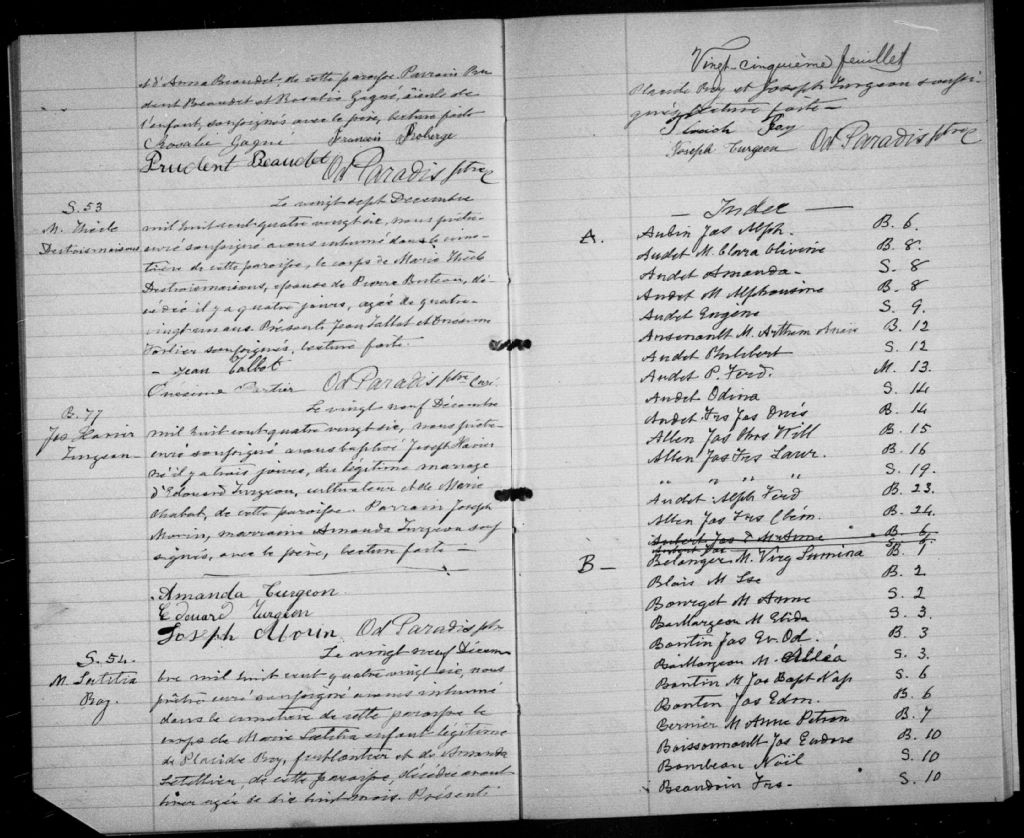 et d'Anna Beaudet, de cette paroisse Parrain Pru
dent Beaudet et Rosalie Gagné, aieule de
l'enfant, soussignés avec le père, lecture faite
Rosalie Gagné Francis Roberge
Prudent Beaudet Od Paradis ptre
S. 53
M. Thècle
Destroismaisons
Le vingt-sept Décembre
mil huit cent quatre vingt six, nous prêtre
curé soussigné avons inhumé dans le cime-
tière de cette paroisse, le corps de Marie Thècle
Destroismaisons, épouse de Pierre Buteau, dé-
cédée il y a quatre jours, agée de quatre-
vingt un ans. Présents Jean Talbot et Onésime
Fortier soussignés, lecture faite.
- Jean Talbot
Onésime Fortier Od Paradis ptre Curé
B. 77
Jos Xavier
Turgeon
Le vingt neuf Décembre
mil huit cent quatre vingt six, nous prêtre
curé soussigné avons baptisé Joseph Xavier
né il y a trois jours, du légitime mariage
d'Edouard Turgeon, cultivateur et de Marie
Chabot, de cette paroisse - Parrain Joseph
Morin, marraine Amanda Turgeon sous
signés, avec le père, lecture faite -
Amanda Turgeon
Edouard Turgeon
Joseph Morin Od Paradis ptre
S. 54.
M. Laetitia
Roy.
Le vingt neuf Décem
bre mil huit cent quatre vingt six, nous
prêtre curé soussigné avons inhumé
dans le cimetière de cette paroisse le
corps de Marie Laetitia enfant légitime
de Placide Roy, ferblantier et de Amanda
Letellier, de cette paroisse, décédée avant
hier agée de dix huit mois. Présents
Vingt-cinquième feuillet
Placide Roy et Joseph Turgeon soussi
gnés lecture faite -
Roy
Joseph Turgeon Od Paradis ptre
- Index -
A. Aubin Jos Alph. B. 6.
Audet M. Clara Olivine B. 8.
Audet Amanda - S. 8
Audet M Alphonsine B. 8
Audet Eugène S. 9.
Arsenault M. B. 12
Audet Philibert S. 12
Audet P. Ferd. M. 13.
Audet Odina S. 14
Audet Frs Jos Onés B. 14
Allen Jos Will B. 15
Allen Jos Frs Laur. B. 16
" " " " S. 19.
Audet Alph Ferd B. 23.
Allen Jos Frs Clém. B. 24.
Aubert Jos & M Anne B. 6
B - Belanger M. Virg Lumina B. 1
Blais M Lse B. 2
Bourget M Anne S. 2
Baillargeon M Elida S. 3.
Bantin Jos Ev. Od. B. 3
Baillargeon M. Alléa S. 3.
Bantin M Jos Bapt Nap S. 6
Bantin Jos Edm. B. 6
Bernier M Anne Petron B. 7
Boissonnault Jos Eudore B. 10
Bourbeau Noël S. 10
Beaudoin Frs - S. 10